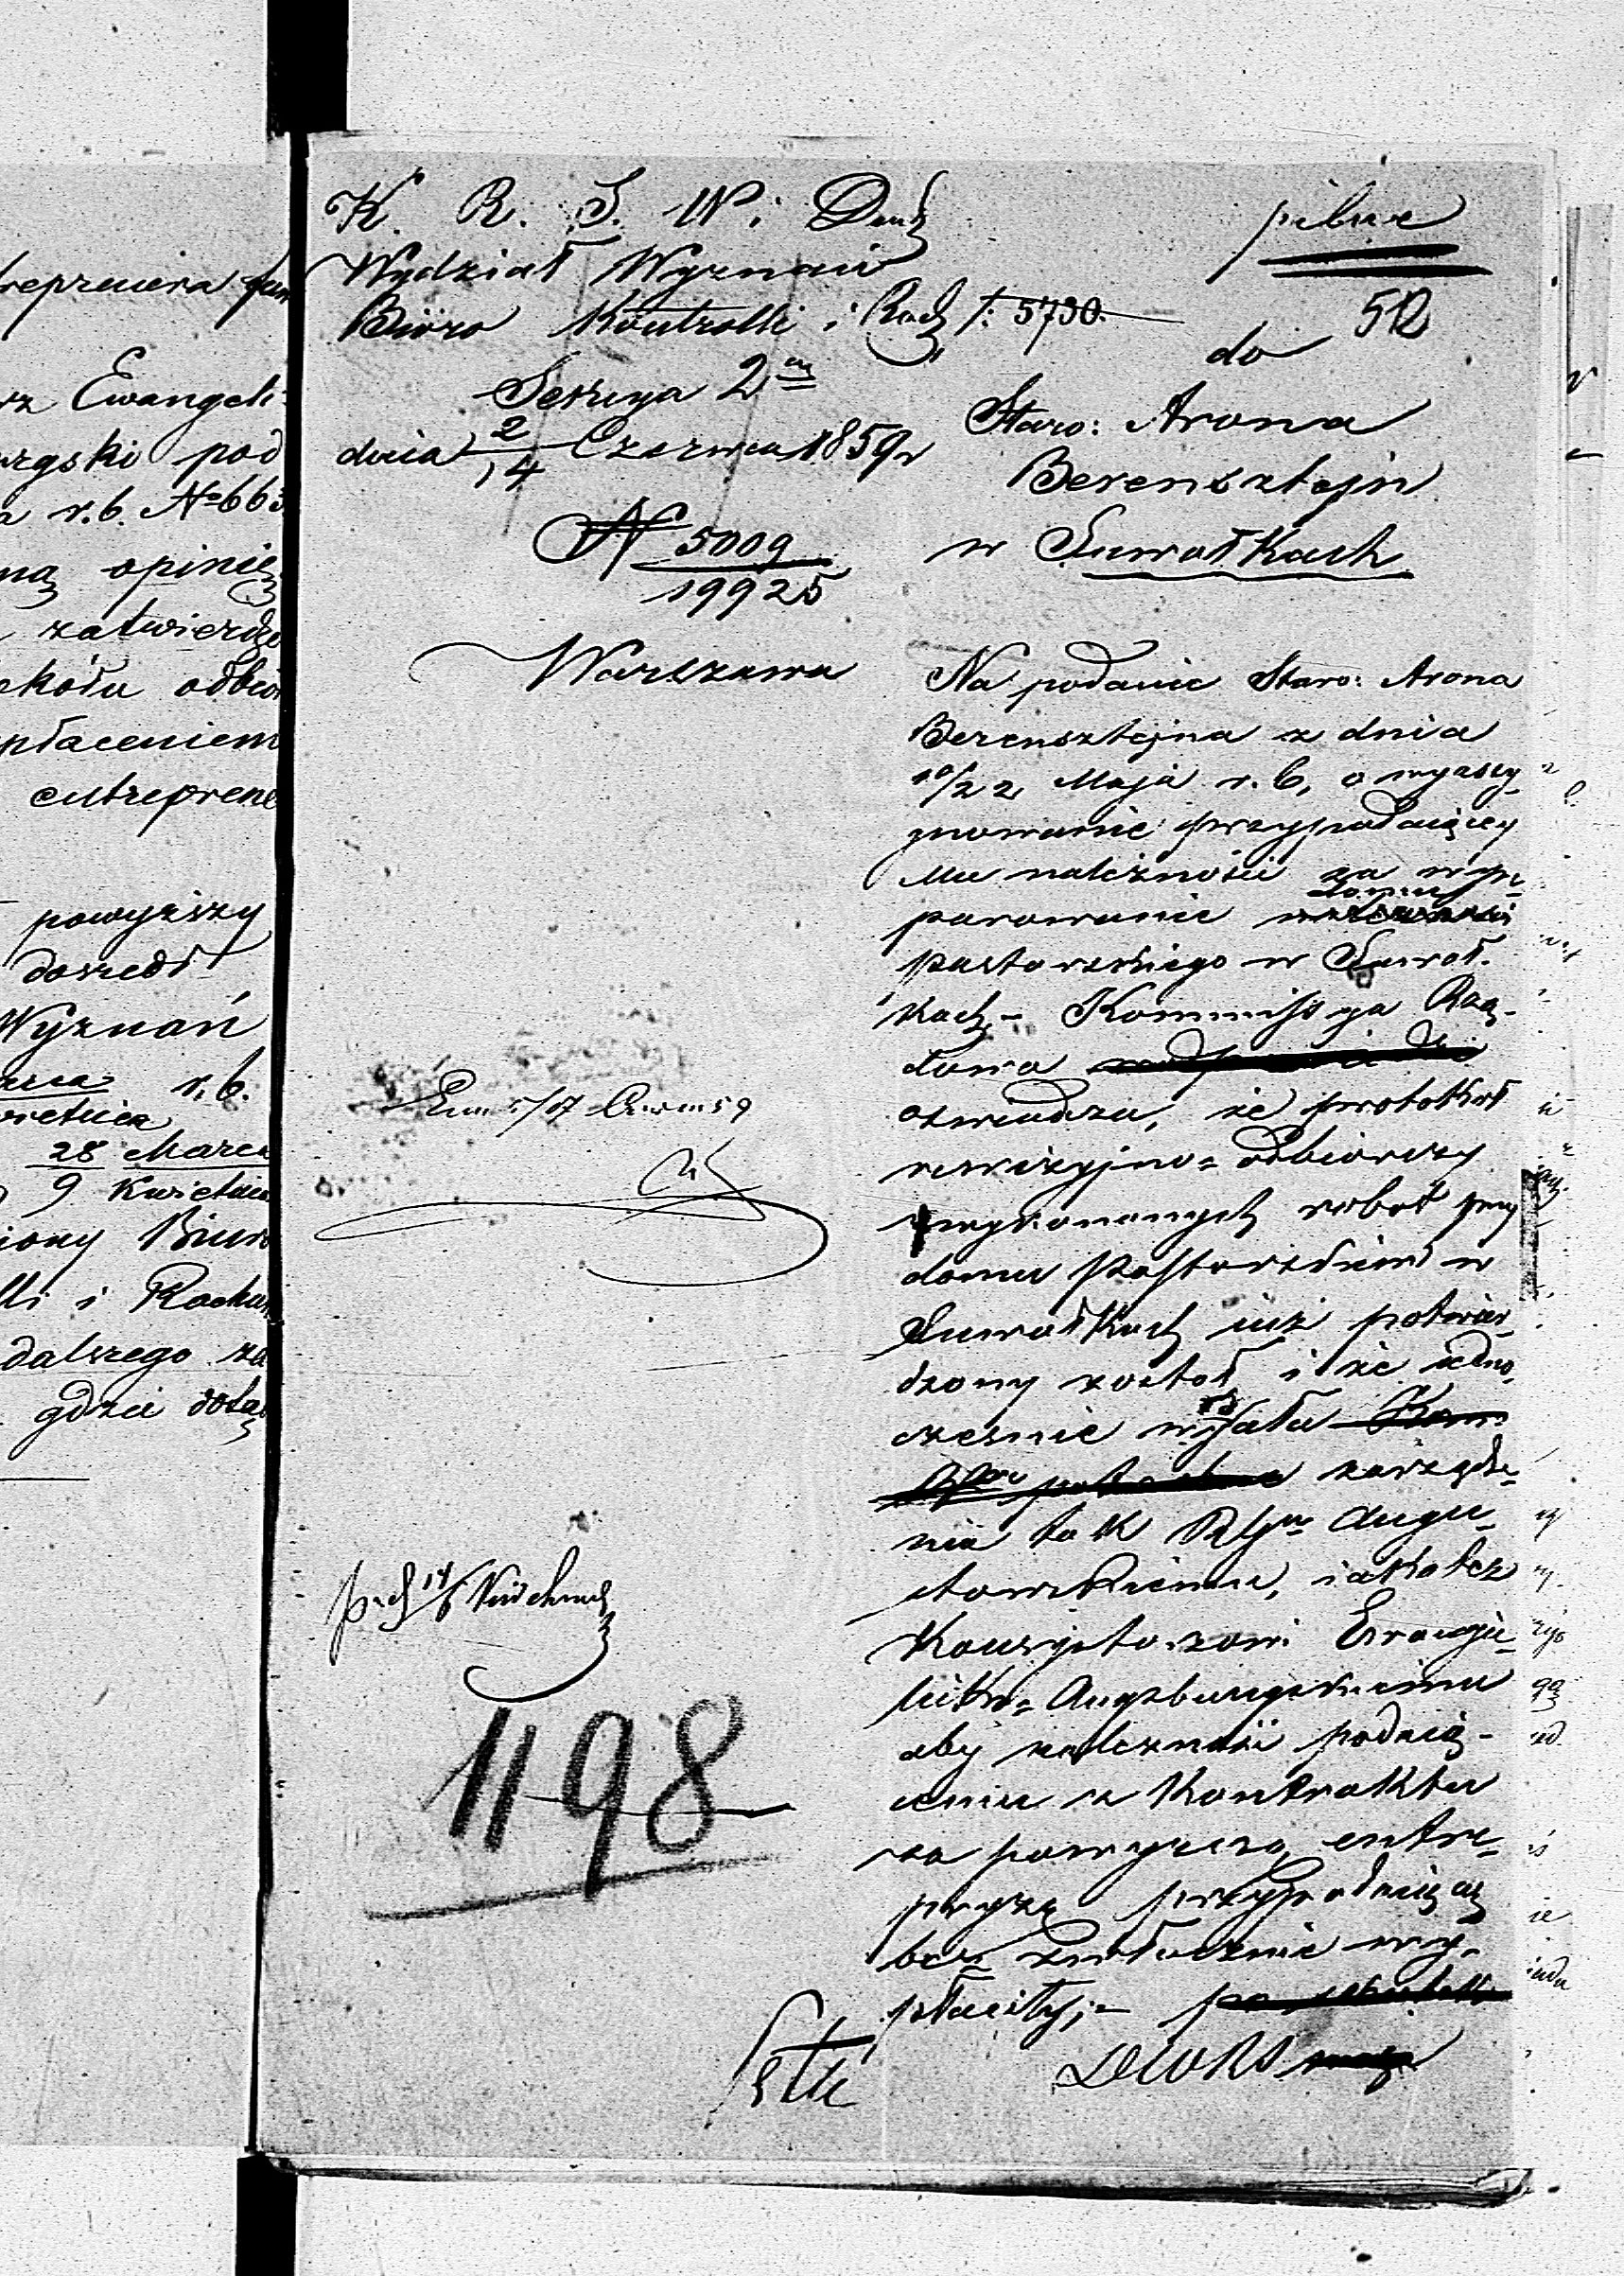 reprenera
rz Ewangeli-
urgski pod
a r.b. No 663
ną opinię
zatwierdzo
płaceniem
entreprene
powyższy
doszedł
Wyznań
r.b.
28 Marca
9 Kwietnia
iony Biuro
lli i Rachun
dalszego za
gdzie dotąd
K. R. S. W. i Duch
Wydział Wyznań
Biuro Kontrolli i Rach /: 5730.
Sekcya 2
dnia 2/14 Czerwca 1859 r
N 5009
19925
Warszawa
1198
pilne
512
do
Staro: Arona
Berensztejn
w Suwałkach
Na podanie Staro: Arona
Berensztejna z dnia
10/22 Maja r. b, o wyasy-
gnowanie przypadaiącey
Mu należności za wyre-
parowanie domu
pastorskiego w Suwał-
kach – Kommissya Rzą-
dowa
oświadcza, że protokół
rewizyjno-odbiorczy
wykonanych robot przy
domu Pastorskim w
Suwałkach już potwier-
dzony został i że jedno-
cześnie wydała
zarządze-
nia tak Augu-
stowskiemu, iakoteż
Konsystorzowi Ewangie-
licko-Augsburgskiemu
aby należność podług
z kontraktu
za powyższą entre-
pryzę przypadaiącą
bez zwłocznie wy-
płaciły;–